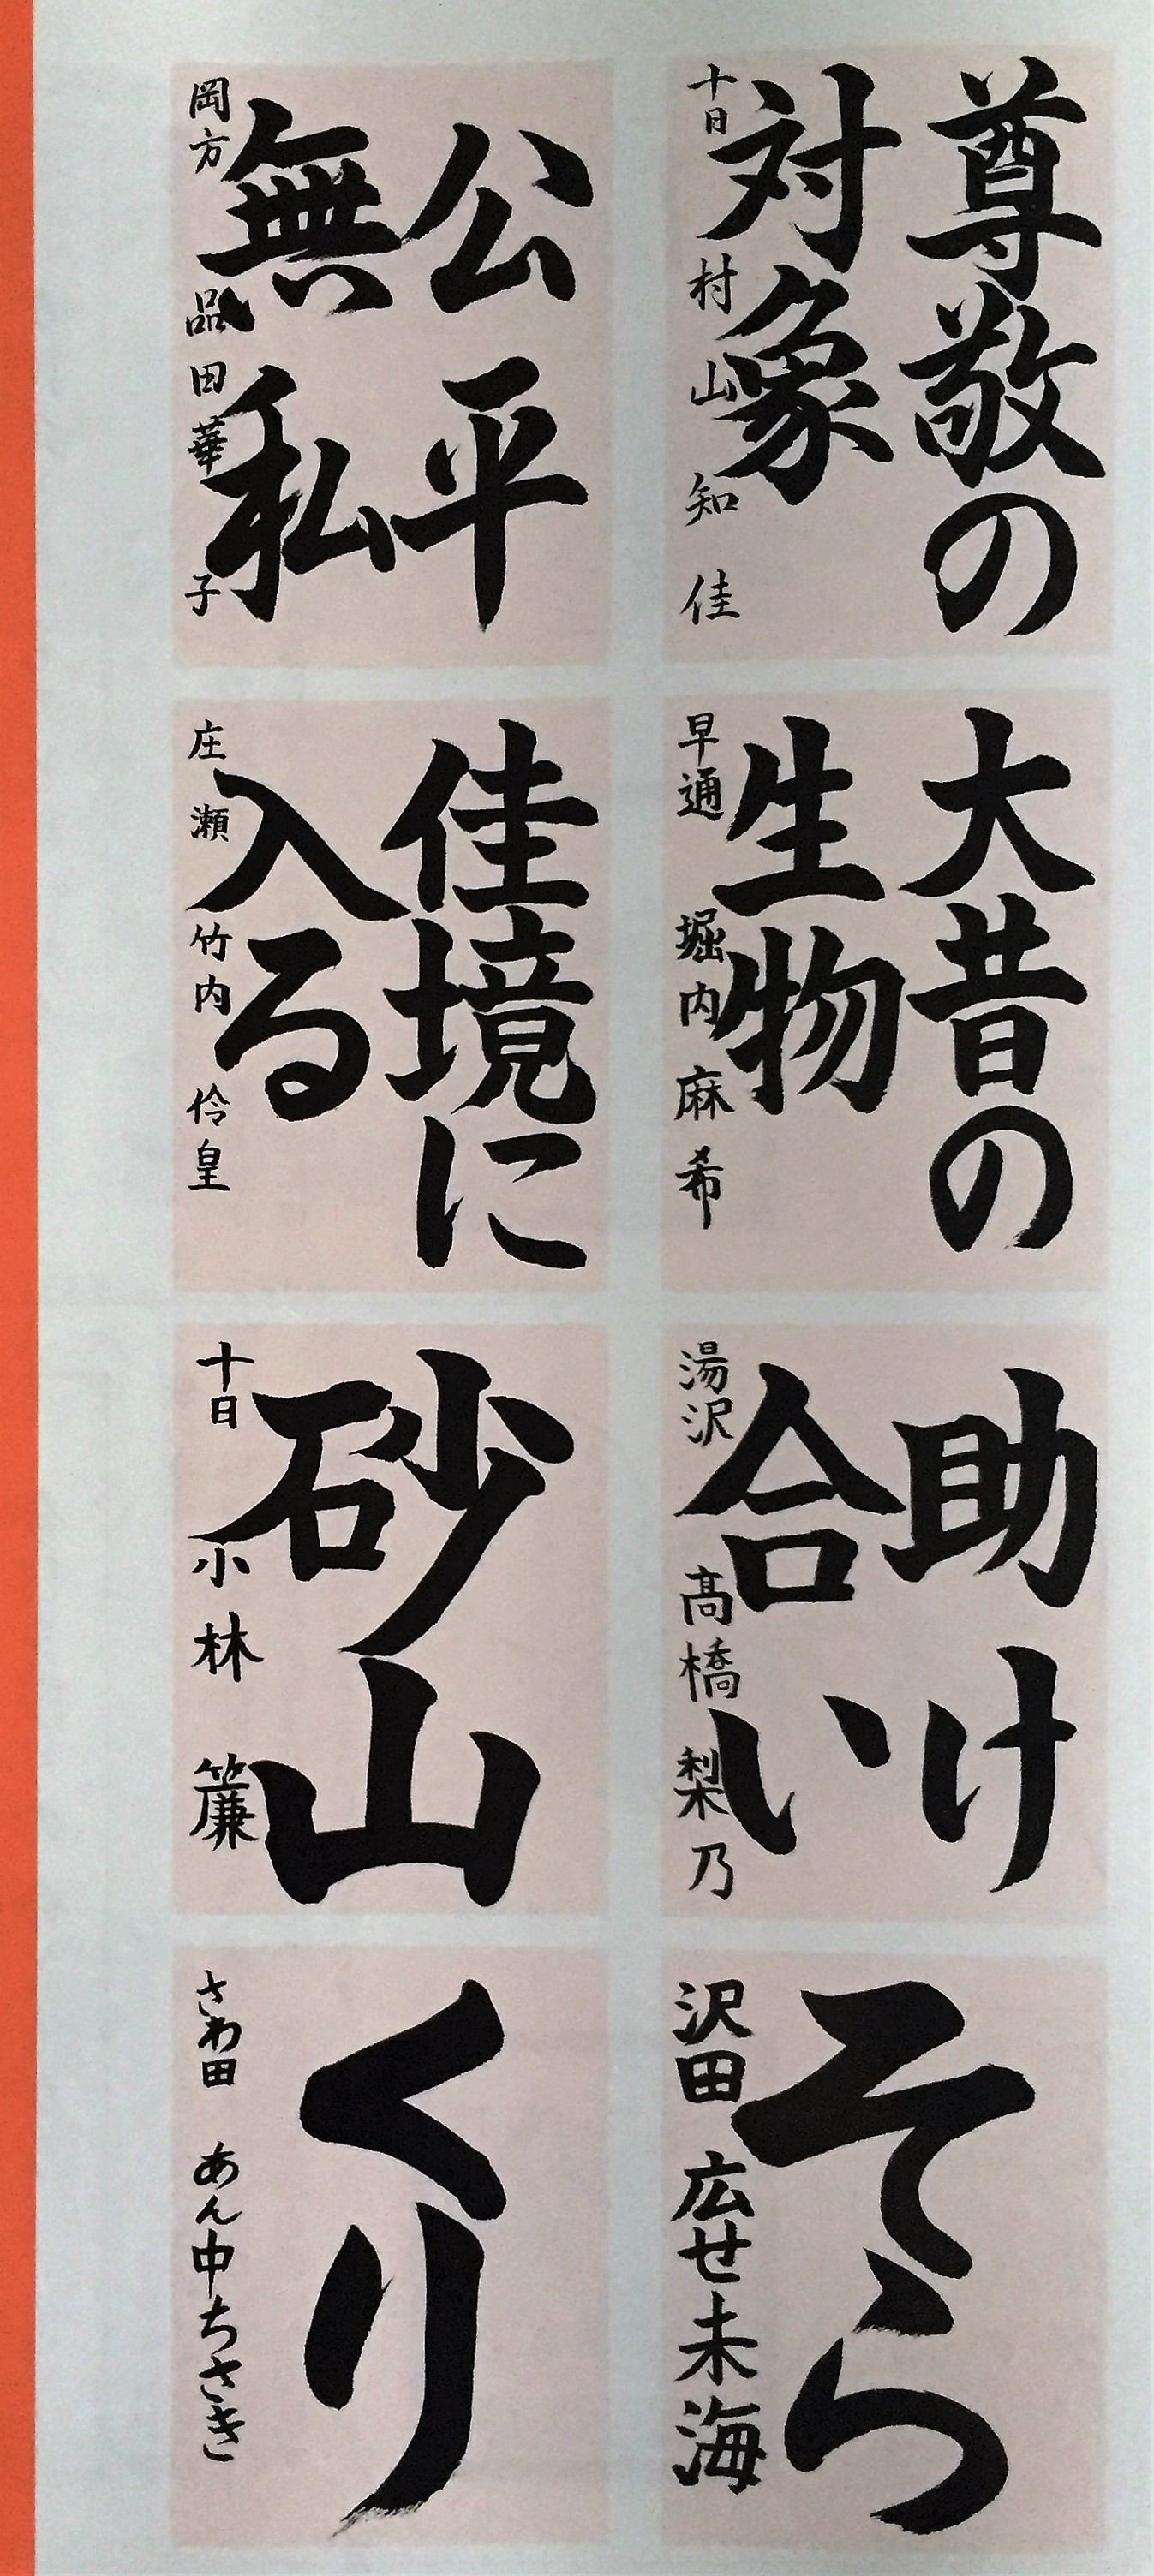 尊敬の
対象
十日 村山知佳
大昔の
生物
早通 堀内麻希
助け
合い
湯沢 髙橋梨乃
そら
沢田 広せ未海
公平
無私
岡方 品田華子
佳境に
入る
庄瀬 竹内伶皇
砂山
十日 小林簾
くり
さわ田 あん中ちさき